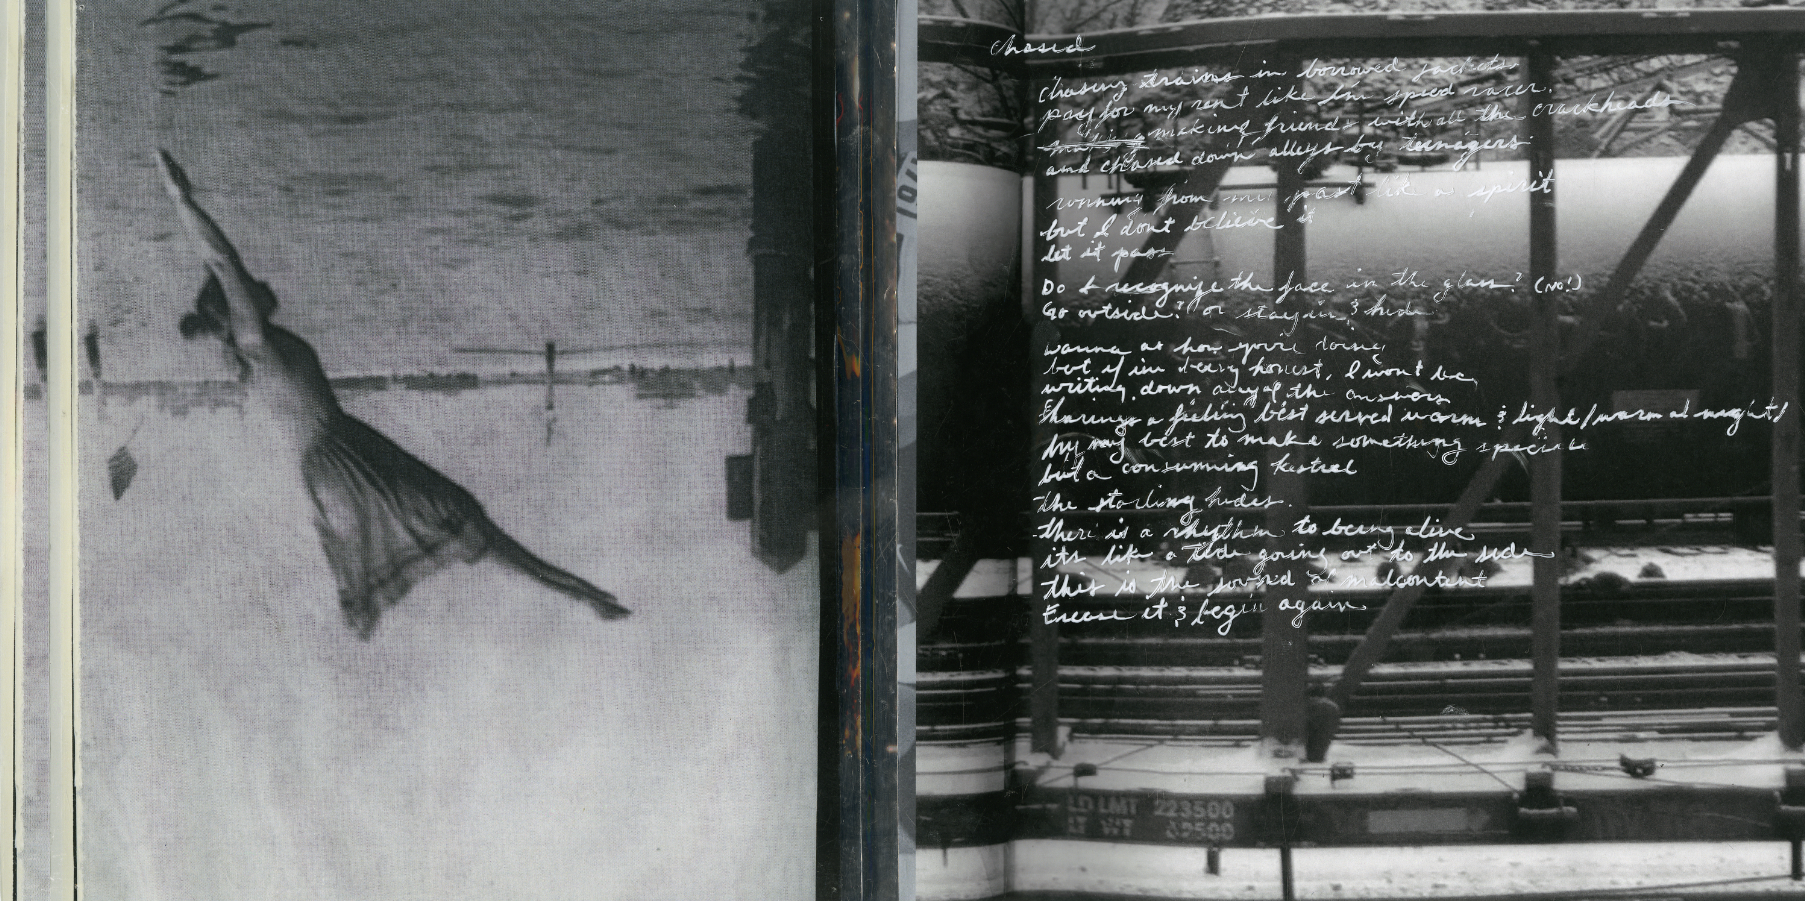 chased
chasing trains in borrowed jackets
pay for my rent like Im speed racer.
making friends with all the crackheads
and chased down alleys by teenagers
running from my past like a spirit
but I dont believe it
let it pass
Do I recognize the face in the glass? (No!)
Go outside? or stay in & hide
wanna as how you're doing
but if im being honest, I won't be
writing down any of the answers
sharing a feeling best served warm & light/warm at night/
try my best to make something special
but a consuming kestrel
the starling hides.
there is a rhythm to being alive
its like a tide going out to the side
this is the sound a malcontent
Erease it & begin again
LD LMT 223500
LT WT